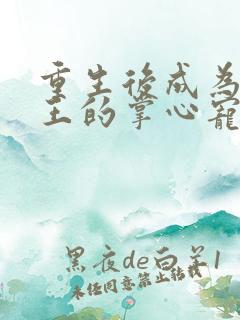 重生後成為
王的掌心寵
黑夜de白羊1
未经同意禁止转载